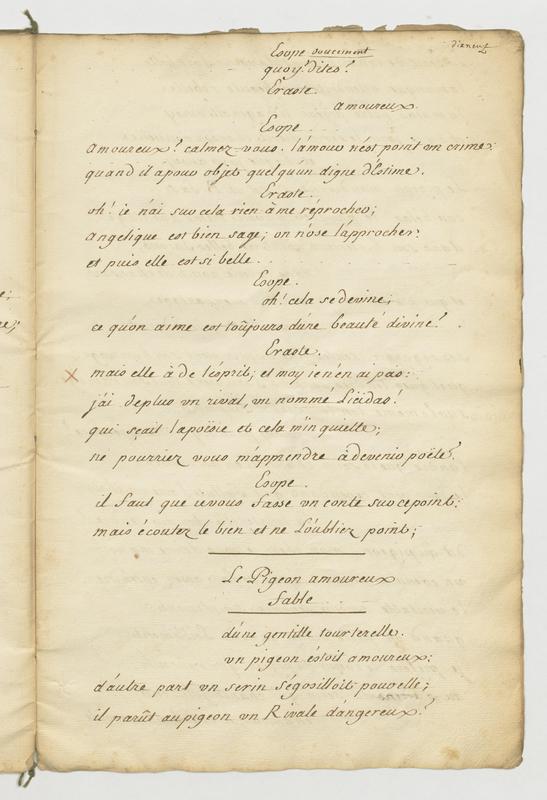 dixneuf
Esope doucement
quoy? dites?
Eraste.
amoureux.
Esope.
amoureux? calmez-vous. l'amour n'est point un crime.
quand il a pour objet quelqu'un digne d'Estime.
Eraste.
oh! ie n'ai sur cela rien à me réprocher;
angelique est bien sage; on n'ose l'approcher:
et puis elle est si belle..
Esope.
oh! cela se devine;
ce qu'on aime est toûjours d'une beauté divine!
Eraste.
mais elle à de l'ésprit; et moy ie n'en ai pas:
j'ai de plus un rival, un nommé Licidas!
qui sçait la poësie et cela m'inquiette;
ne pourriez vous m'apprendre à devenir poëte?
Esope.
il faut que ie vous fasse un conte sur ce point;
mais écoutez le bien et ne L'oubliez point;
Le Pigeon amoureux
fable.
d'une gentille tourterelle.
un pigeon éstoit amoureux;
d'autre part un serin s'égosilloit pour elle;
il parût au pigeon un Rivale dangereux?
e;
ne;